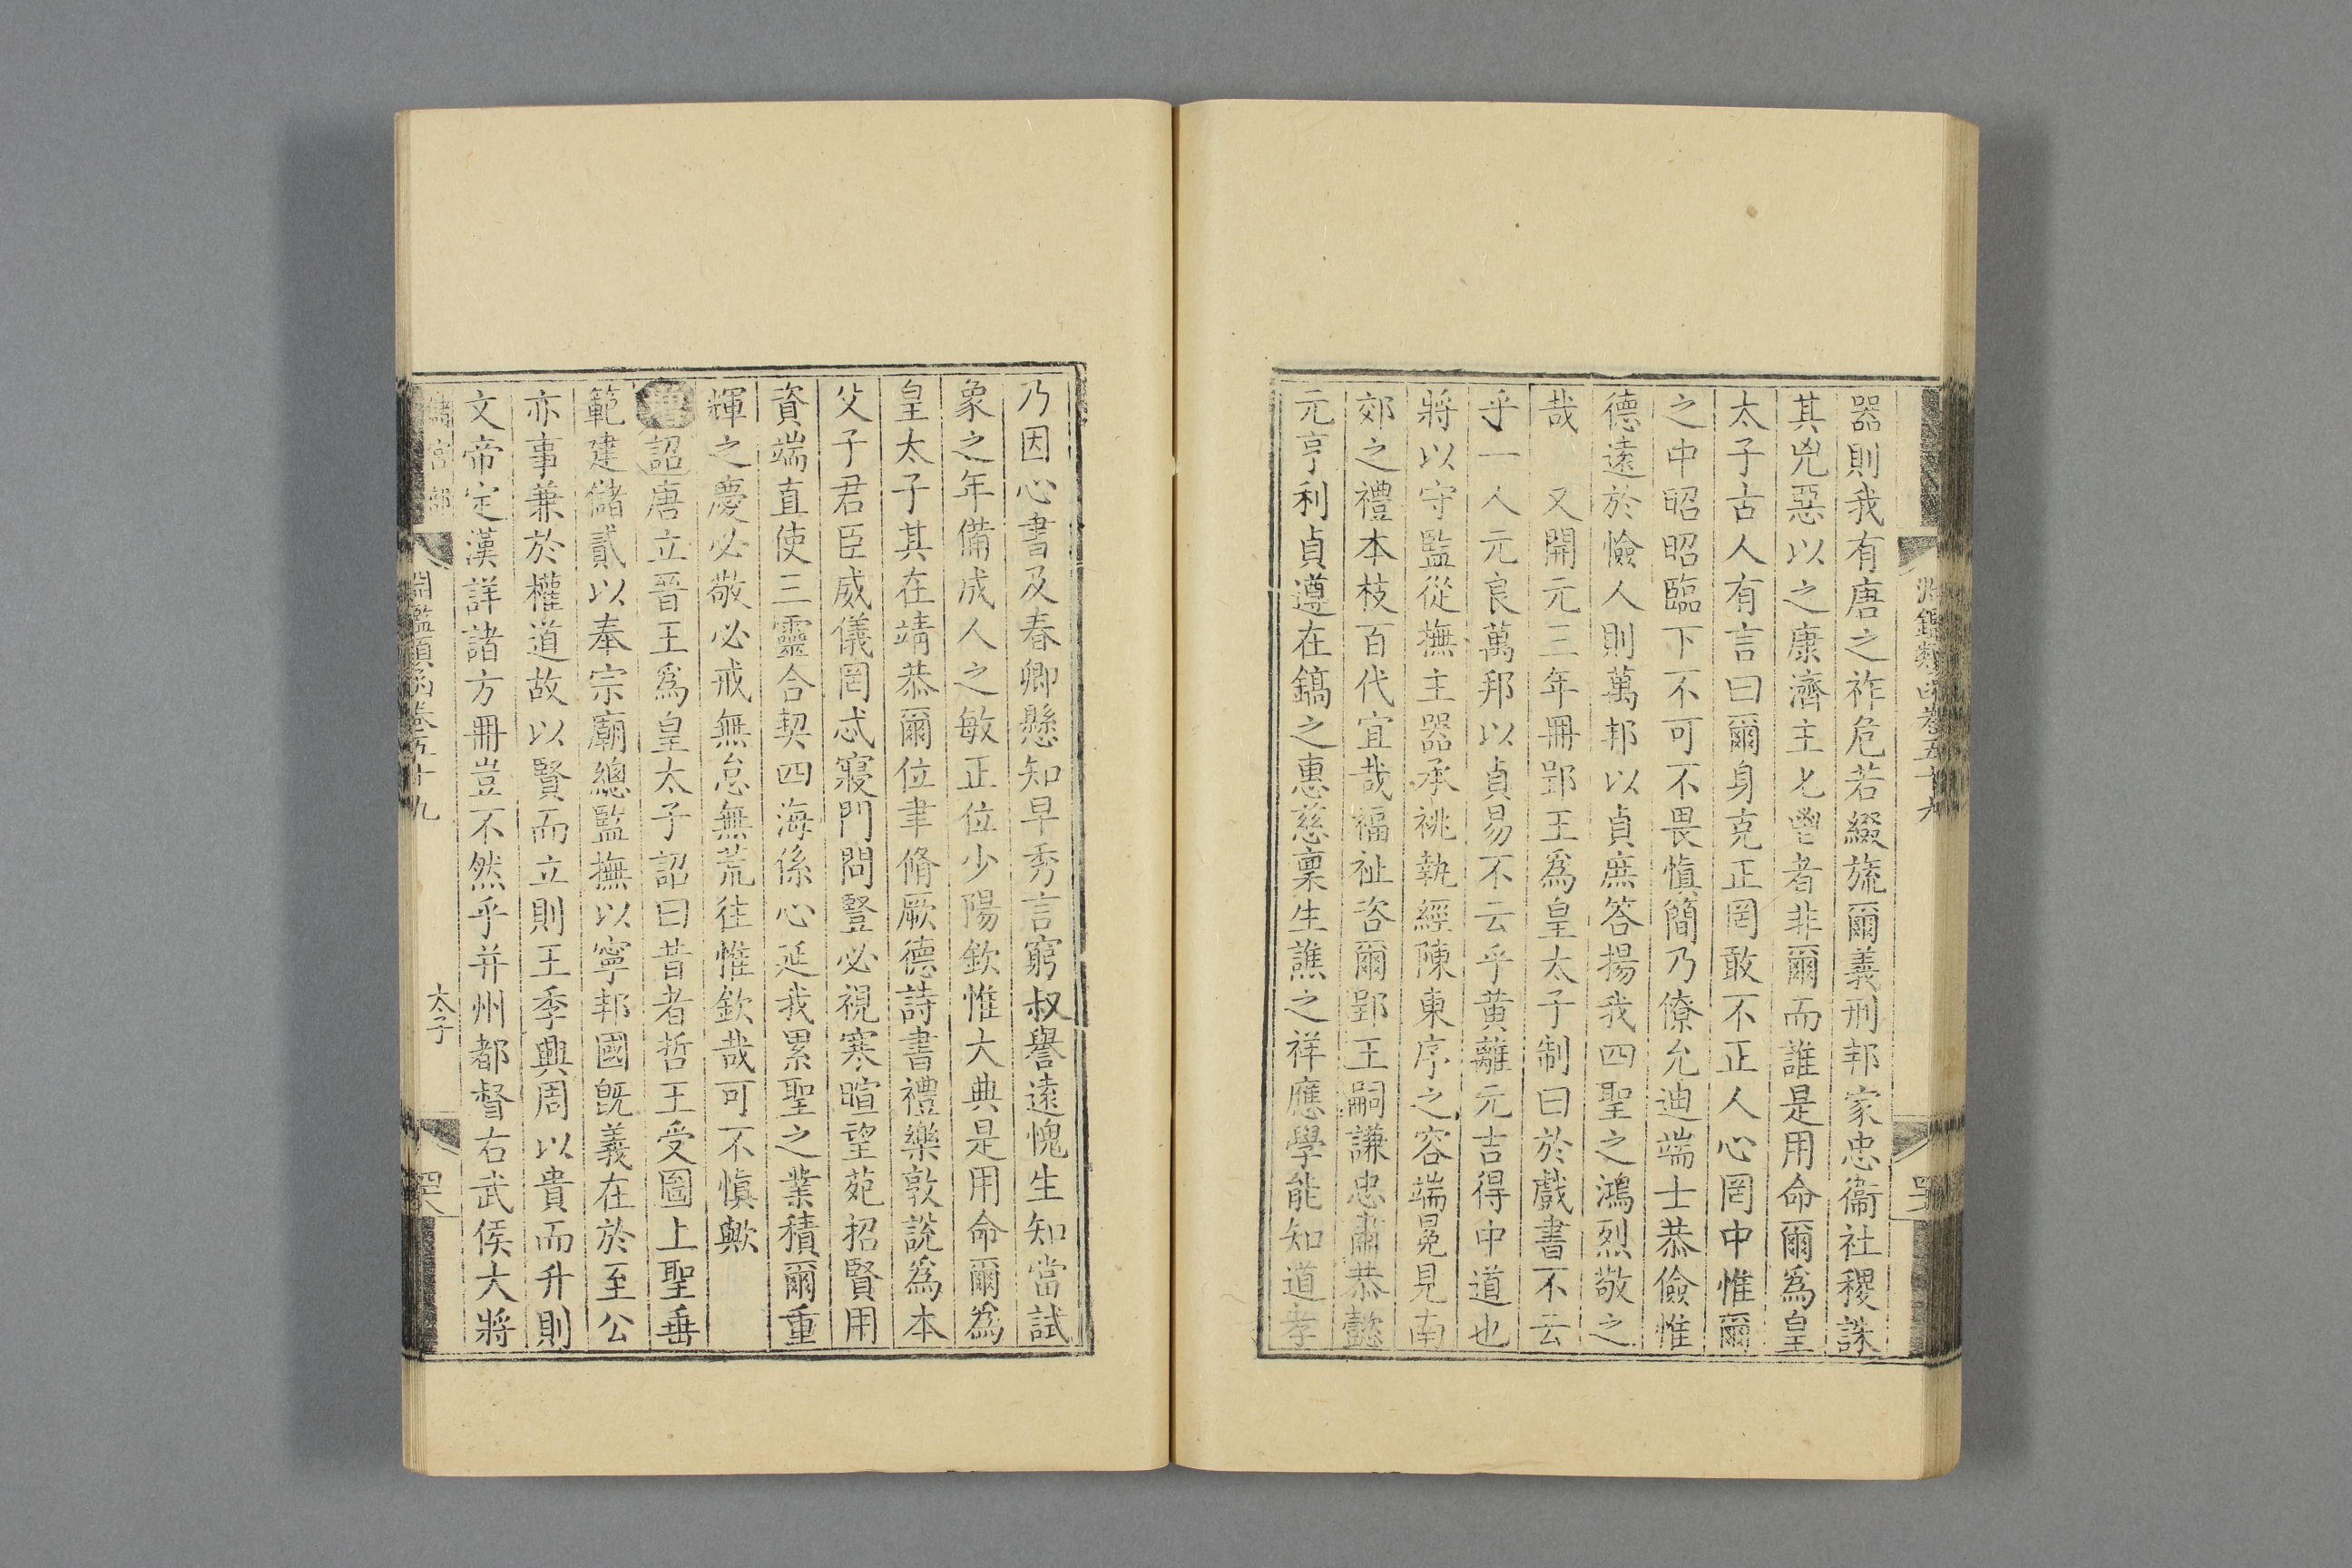 淵鑑類函卷五十九
器則我有唐之祚危若綴旒爾義刑邦家忠衞社稷誅
其兇惡以之康濟主匕鬯者非爾而誰是用命爾爲皇
太子古人有言曰爾身克正罔敢不正人心罔中惟爾
之中昭昭臨下不可不畏愼簡乃僚允迪端士恭儉惟
德遠於憸人則萬邦以貞庶答揚我四聖之鴻烈敬之
哉　又開元三年冊郢王爲皇太子制曰於戲書不云
乎一人元良萬邦以貞易不云乎黃離元吉得中道也
將以守監從撫主器承祧執經陳東序之容端冕見南
郊之禮本枝百代宜哉福祉咨爾郢王嗣謙忠肅恭懿
元亨利貞遵在鎬之惠慈稟生譙之祥應學能知道孝
乃因心書及春卿懸知早秀言窮叔譽遠愧生知當試
象之年備成人之敏正位少陽欽惟大典是用命爾爲
皇太子其在靖恭爾位聿脩厥德詩書禮樂敦說爲本
父子君臣威儀罔忒寢門問豎必視寒暄望苑招賢用
資端直使三靈合契四海係心延我累聖之業積爾重
輝之慶必敬必戒無怠無荒往惟欽哉可不愼歟
詔唐立晉王爲皇太子詔曰昔者哲王受圖上聖垂
範建儲貳以奉宗廟總監撫以寧邦國旣義在於至公
亦事兼於權道故以賢而立則王季興周以貴而升則
文帝定漢詳諸方冊豈不然乎并州都督右武侯大將
儲宮部
淵鑑類函卷五十九
太子